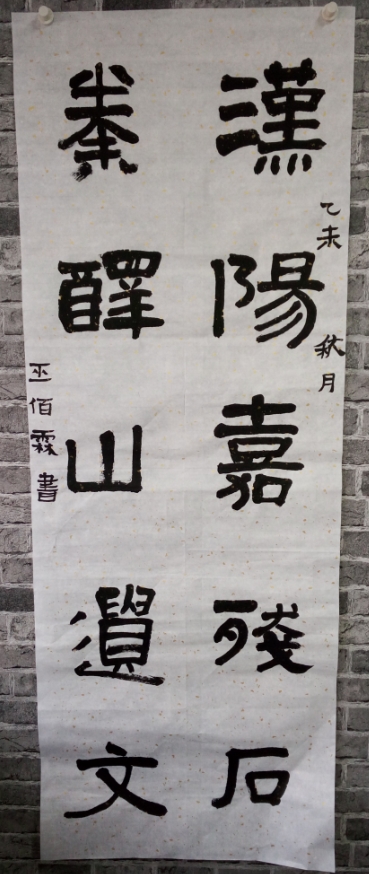 乙未 秋月
漢陽嘉殘石
秦醳山遺文
巫佰霖書